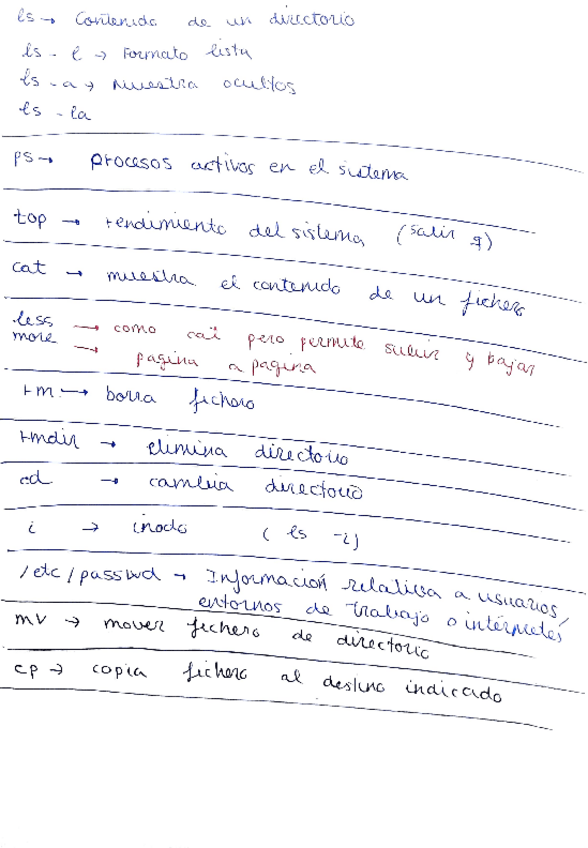 ls → Contenido de un directorio
ls - l → Formato lista
ls - a → Muestra ocultos
ls - la
ps → procesos activos en el sistema
top → rendimiento del sistema (salir q)
cat → muestra el contenido de un fichero
less → como cat pero permite subir y bajar
more → pagina a pagina
rm → borra fichero
rmdir → elimina directorio
cd → cambia directorio
i → inodo ( ls -i)
/etc/passwd → Información relativa a usuarios/
entornos de trabajo o intérpretes
mv → mover fichero de directorio
cp → copia fichero al destino indicado